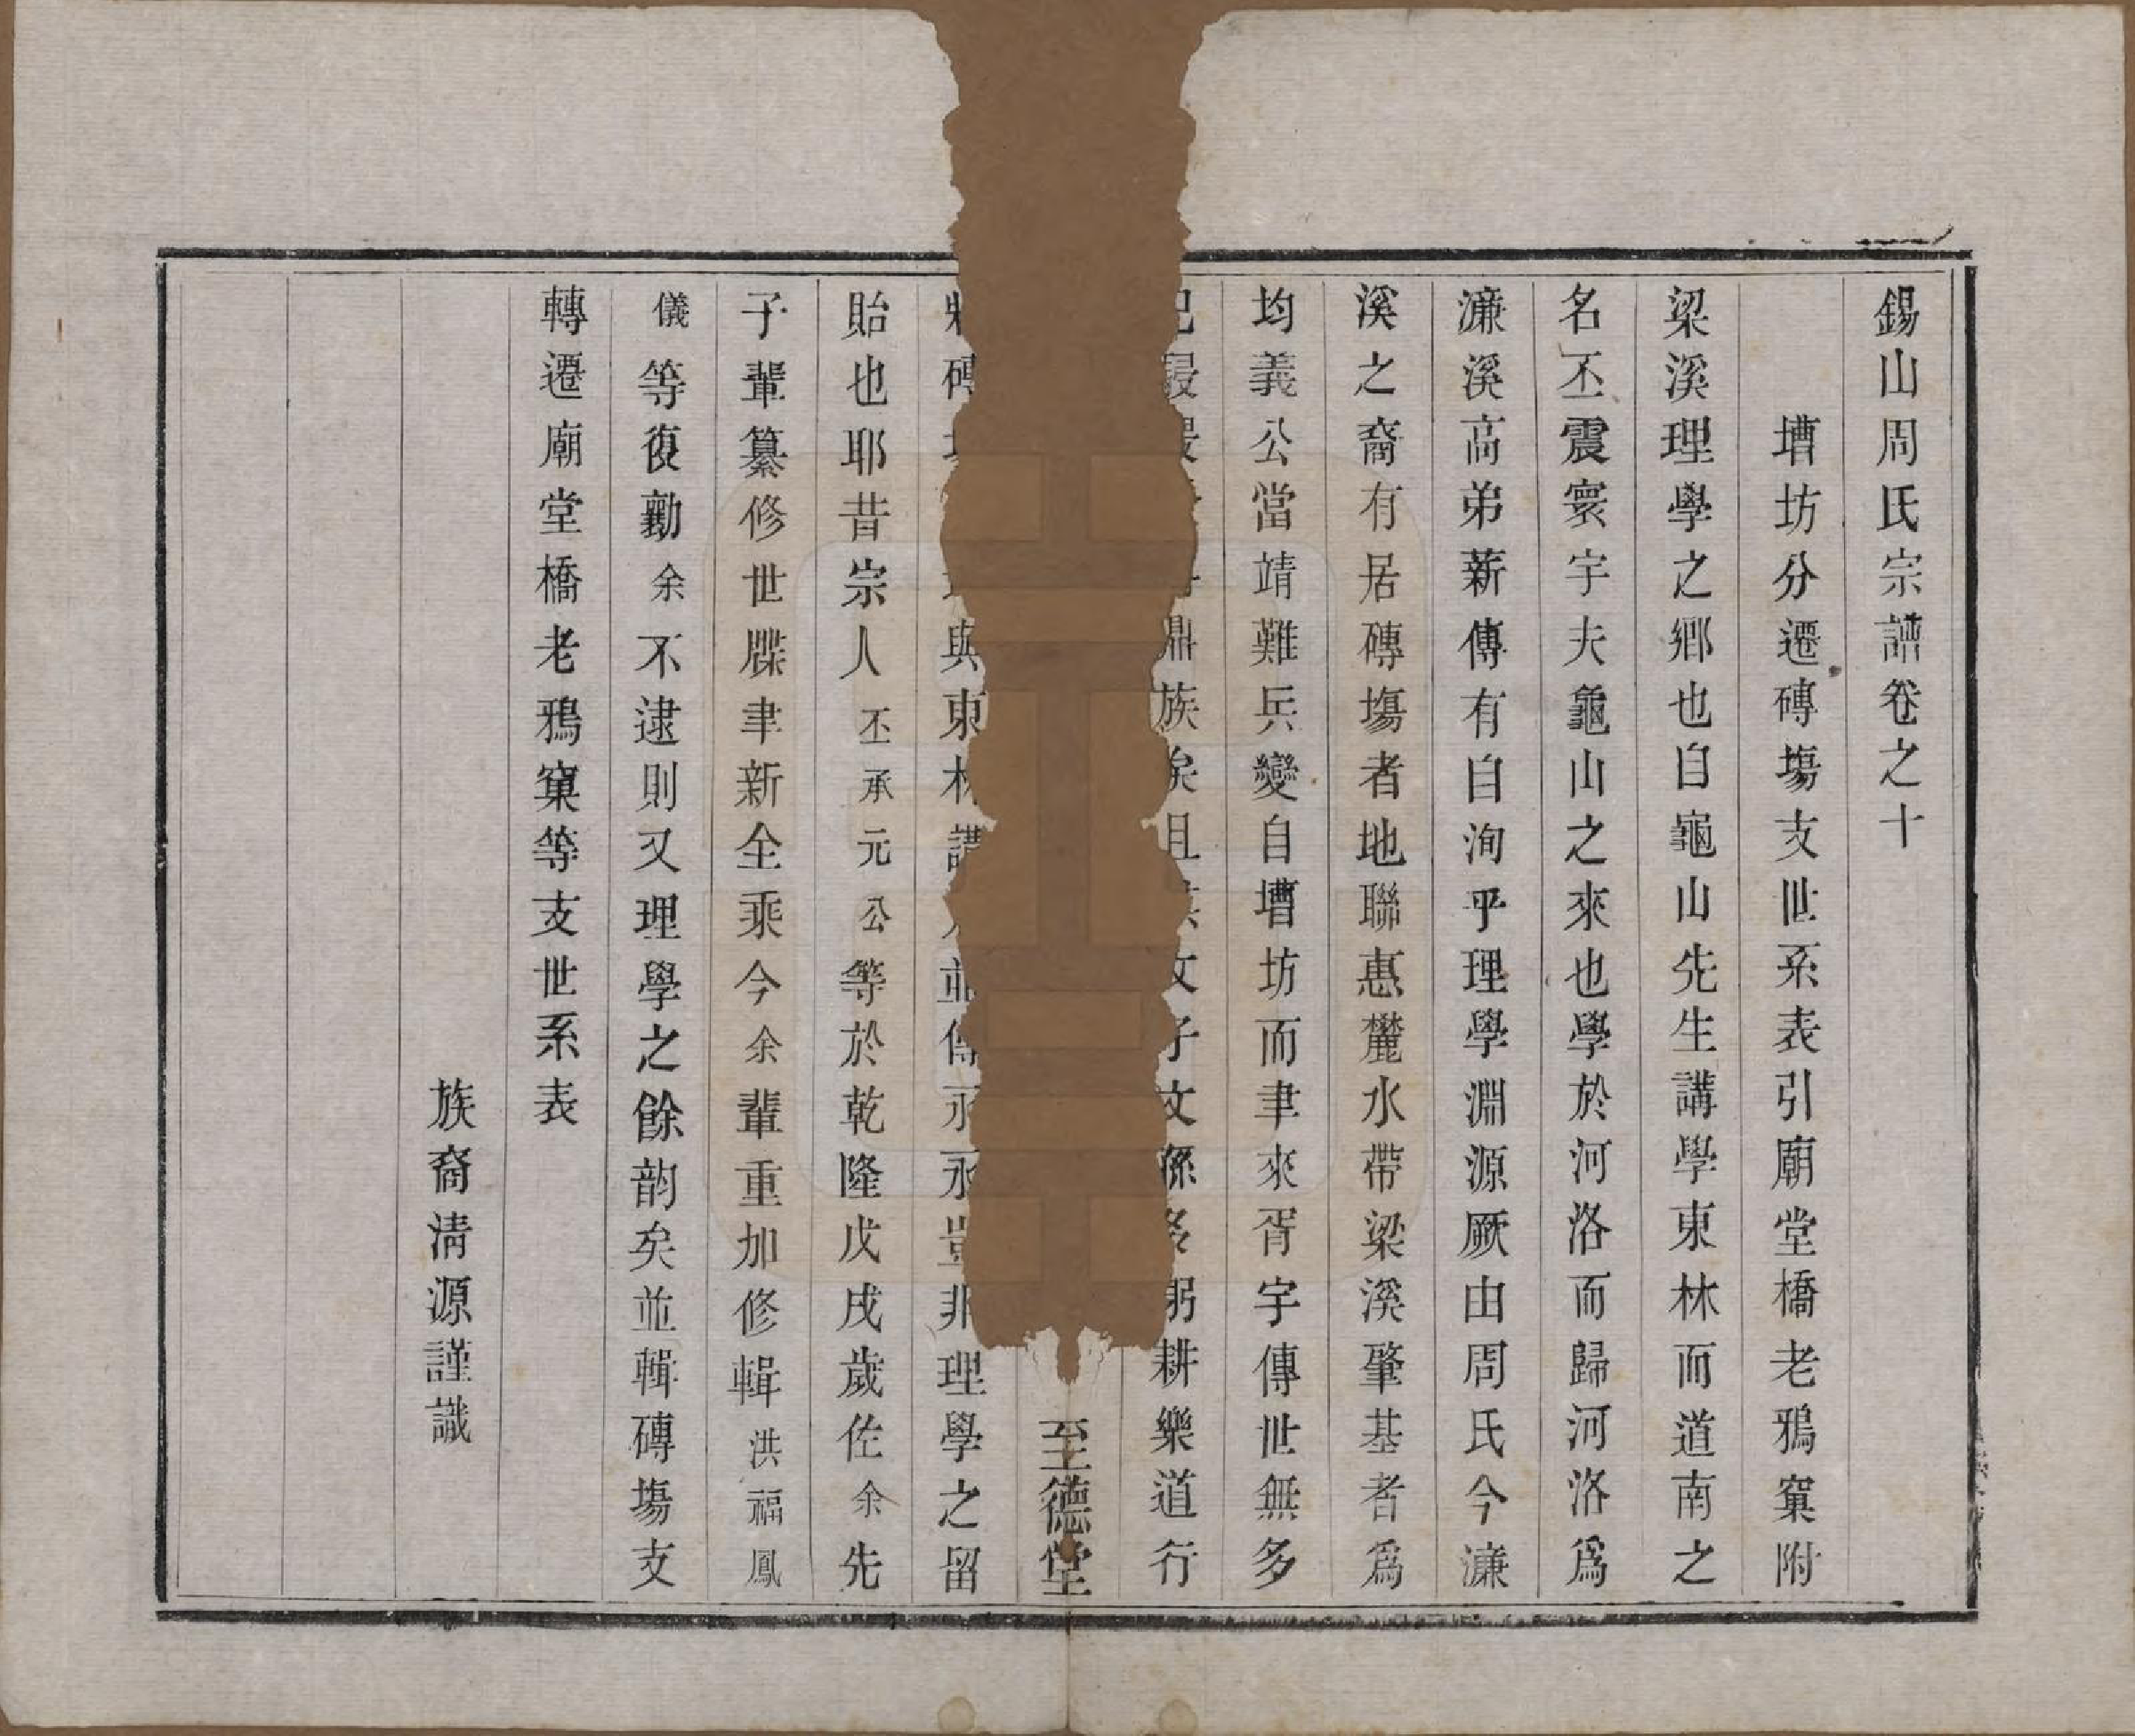 錫山周氏宗譜卷之十
塘坊分遷磚塲支世系表引廟堂橋老鴉窠附
梁溪理學之鄉也自龜山先生講學東林而道南之
名丕震寰宇夫龜山之來也學於河洛而歸河洛爲
濂溪高弟薪傳有自洵乎理學淵源厥由周氏今濂
溪之裔有居磚塲者地聯惠麓水帶梁溪肇基者爲
均義公當靖難兵變自塘坊而聿來胥宇傳世無多
鼎族矣且文子文孫多躬耕樂道行
至德堂
將磚與東林講並傳永永豈非理學之留
貽也耶昔宗人丕承元公等於乾隆戊戌歲佐余先
子輩纂修世牒聿新全乘今余輩重加修輯洪福鳳
儀等復勷余不逮則又理學之餘韵矣並輯磚塲支
轉遷廟堂橋老鴉窠等支世系表
族裔清源謹識